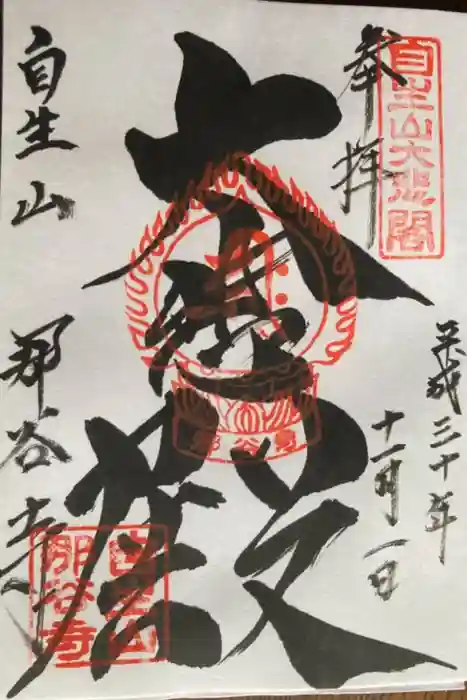 奉拝
自生山大悲閣
平成三十年
十一月一日
大悲殿
那谷寺
自生山
那谷寺
自生山
那谷寺